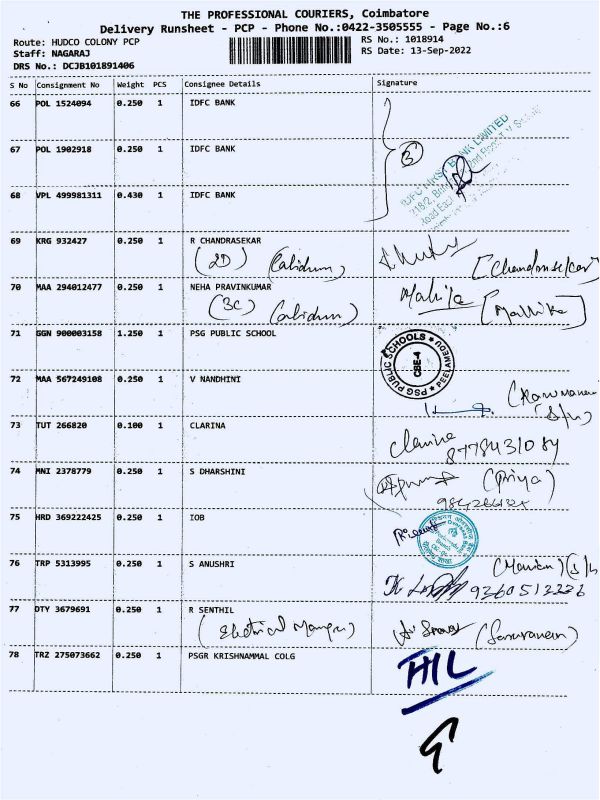 THE PROFESSIONAL COURIERS, Coimbatore
Delivery Runsheet - PCP - Phone No.:0422-3505555 - Page No.:6
Route: HUDCO COLONY PCP
RS No.: 1018914
Staff: NAGARAJ
RS Date: 13-Sep-2022
DRS No.: DCJB101891406
S No Consignment No Weight PCS Consignee Details Signature
66 POL 1524094 0.250 1 IDFC BANK
67 POL 1902918 0.250 1 IDFC BANK
3
IDFC FIRST BANK LIMITED
68 VPL 499981311 0.430 1 IDFC BANK
69 KRG 932427 0.250 1 R CHANDRASEKAR
(2D)
70 MAA 294012477 0.250 1 NEHA PRAVINKUMAR
(3C)
[Mallika]
71 GGN 900003158 1.250 1 PSG PUBLIC SCHOOL
PSG PUBLIC SCHOOLS
PEELAMEDU
CBE-4
72 MAA 567249108 0.250 1 V NANDHINI
73 TUT 266820 0.100 1 CLARINA
Clarina
74 MNI 2378779 0.250 1 S DHARSHINI
(Priya)
75 HRD 369222425 0.250 1 IOB
76 TRP 5313995 0.250 1 S ANUSHRI
77 DTY 3679691 0.250 1 R SENTHIL
78 TRZ 275073662 0.250 1 PSGR KRISHNAMMAL COLG